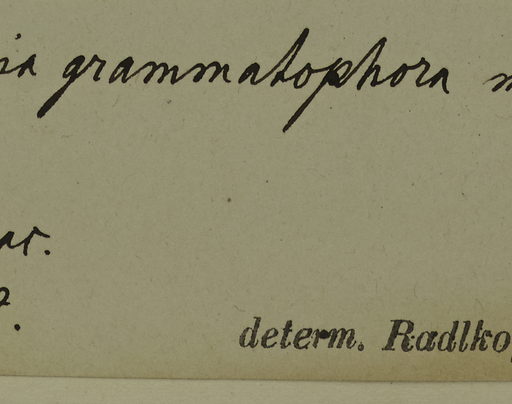 ia grammatophora m
ar.
determ. Radlko